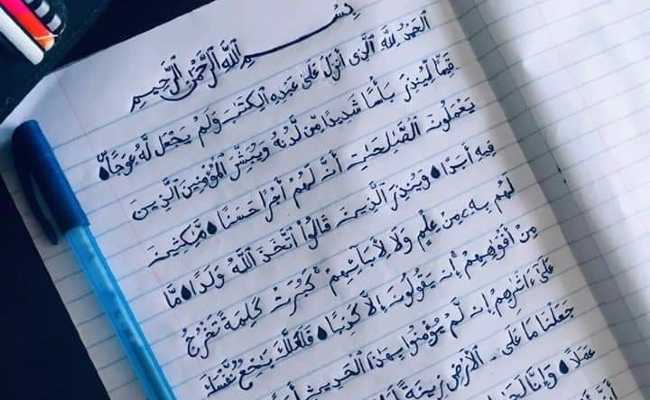 بِسْمِ اللَّهِ الرَّحْمَٰنِ الرَّحِيمِ
الْحَمْدُ لِلَّهِ الَّذِي أَنْزَلَ عَلَىٰ عَبْدِهِ الْكِتَٰبَ وَلَمْ يَجْعَلْ لَهُ عِوَجًا
قَيِّمًا لِيُنْذِرَ بَأْسًا شَدِيدًا مِنْ لَدُنْهُ وَيُبَشِّرَ الْمُؤْمِنِينَ الَّذِينَ
يَعْمَلُونَ الصَّٰلِحَٰتِ أَنَّ لَهُمْ أَجْرًا حَسَنًا مَٰكِثِينَ
فِيهِ أَبَدًا وَيُنْذِرَ الَّذِينَ قَالُوا اتَّخَذَ اللَّهُ وَلَدًا مَا
لَهُمْ بِهِ مِنْ عِلْمٍ وَلَا لِأَبَائِهِمْ كَبُرَتْ كَلِمَةً تَخْرُجُ
مِنْ أَفْوَٰهِهِمْ إِنْ يَقُولُونَ إِلَّا كَذِبًا فَلَعَلَّكَ بَٰخِعٌ نَفْسَكَ
عَلَىٰ ءَاثَٰرِهِمْ إِنْ لَمْ يُؤْمِنُوا بِهَٰذَا الْحَدِيثِ
جَعَلْنَا مَا عَلَى الْأَرْضِ زِينَةً
عَمَلًا وَإِنَّا